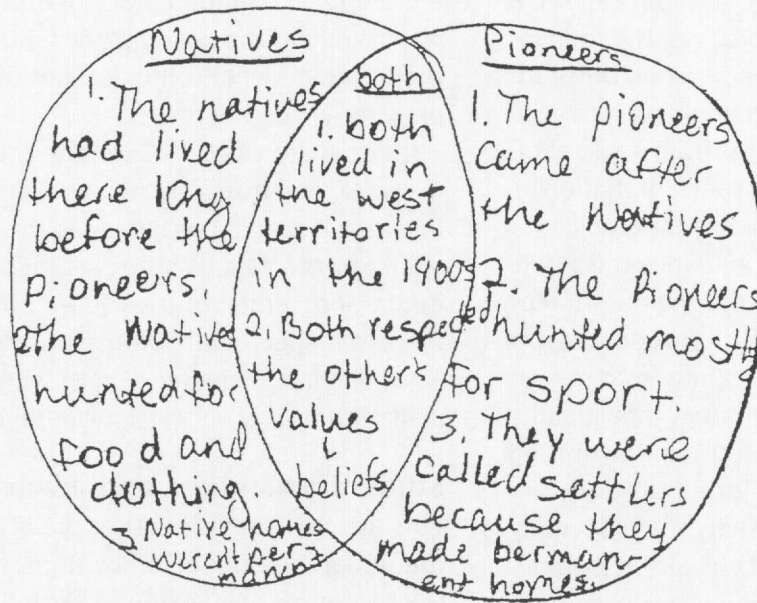 Natives
1. The natives
had lived
there long
before the
Pioneers.
2. The Natives
hunted for
food and
clothing
3. Native homes
werent per-
manint
both
1. both
lived in
the west
territories
in the 1900s
2. Both respected
the other's
values
&
beliefs
Pioneers
1. The pioneers
came after
the Natives
2. The Pioneers
hunted mostly
for sport.
3. They were
called settlers
because they
made berman-
ent homes.